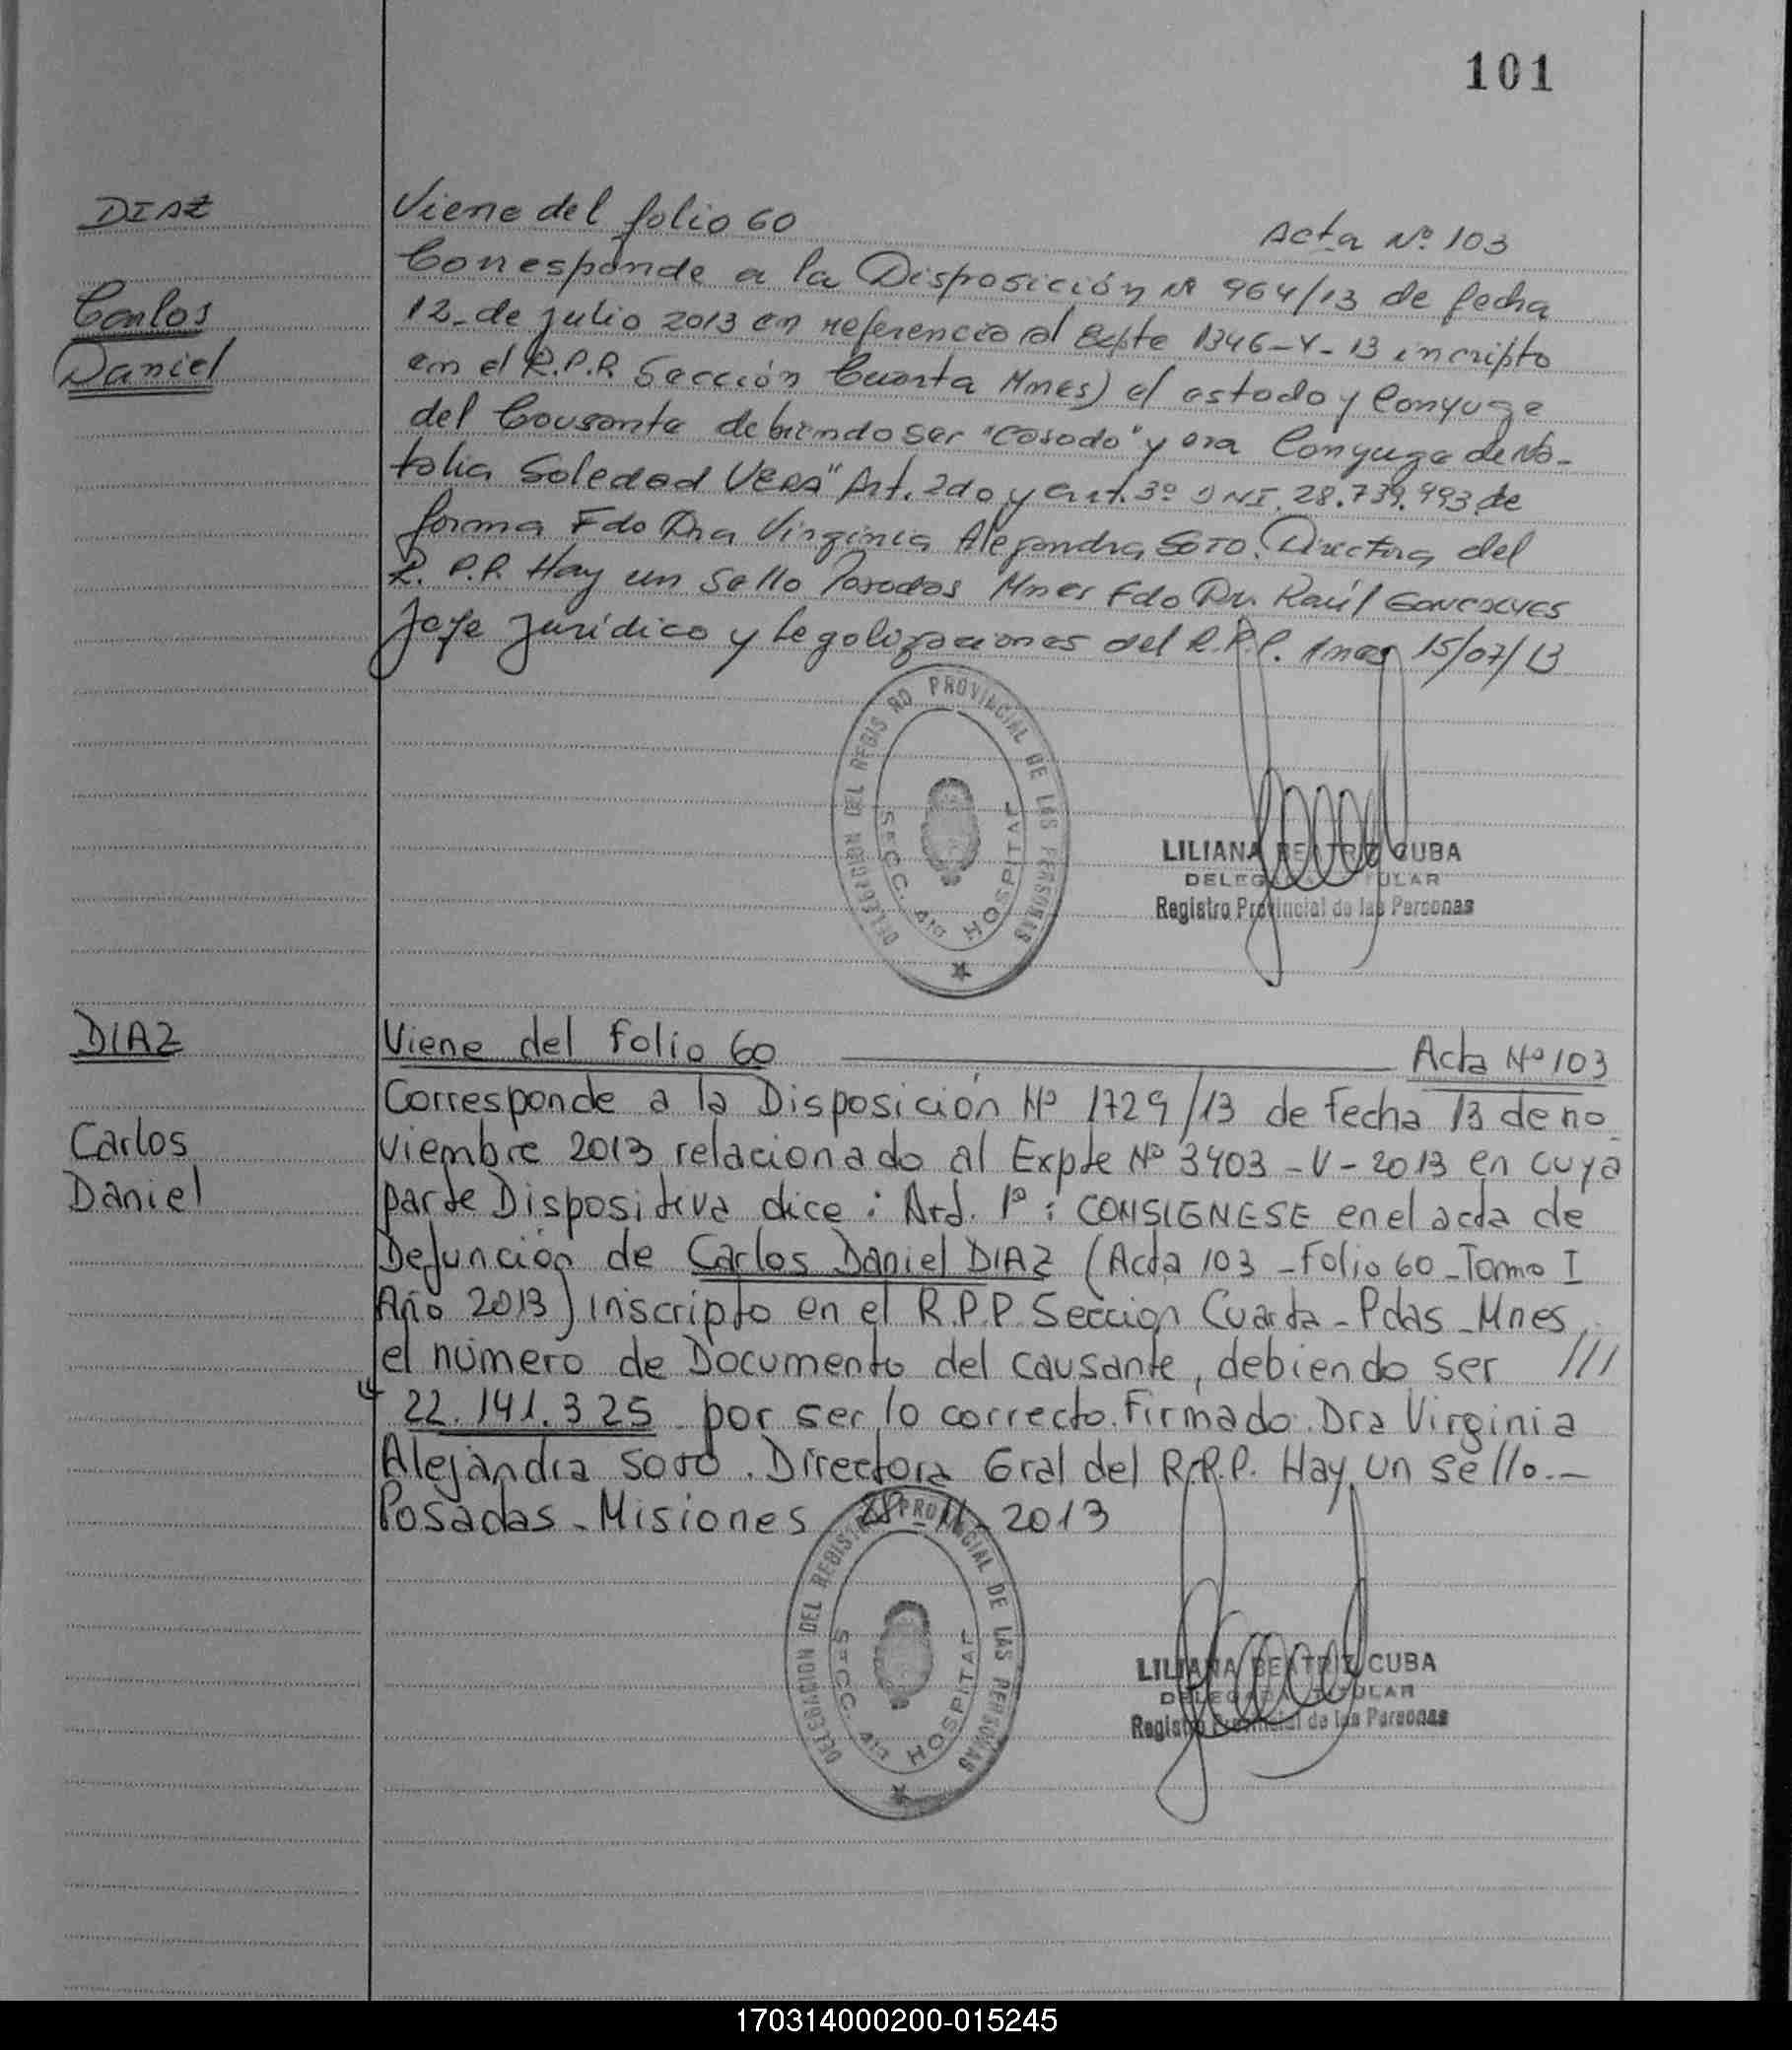 101
DIAZ
Carlos
Daniel
Viene del folio 60
Acta Nº 103
Corresponde a la Disposición Nº 964/13 de fecha
12 de julio 2013 en referencia al Expte 1346-V-13 incripto
en el R.P.P. Sección Cuarta Mnes) el estado y Conyuge
del Causante debiendo ser "Casado" y era Conyuge de Na-
talia Soledad VERA" Art. 2do y art. 3º DNI. 28.739.993 de
forma Fdo Dra Virginia Alejandra SOTO. Directora del
R. P.P. Hay un Sello Posadas Mnes Fdo Dr. Raúl GONCALVES
Jefe Jurídico y Legalizaciones del R.P.P. Mnes 15/07/13
DELEGACION DEL REGISTRO PROVINCIAL DE LAS PERSONAS
SECC. 4ta HOSPITAL
LILIANA BEATRIZ CUBA
DELEGADA TITULAR
Registro Provincial de las Personas
DIAZ
Carlos
Daniel
Viene del Folio 60
Acta Nº 103
Corresponde a la Disposición Nº 1729/13 de fecha 13 de no
viembre 2013 relacionado al Expte Nº 3403-V-2013 en cuya
parte Dispositiva dice: Art. 1º: CONSIGNESE en el acta de
Defunción de Carlos Daniel DIAZ (Acta 103 - Folio 60 - Tomo I
Año 2013) inscripto en el R.P.P. Seccion Cuarta - Pdas - Mnes
el número de Documento del causante, debiendo ser ///
22.141.325 por ser lo correcto. Firmado: Dra Virginia
Alejandra SOTO. Directora Gral del R.P.P. Hay un sello.-
Posadas - Misiones 28-11-2013
DELEGACION DEL REGISTRO PROVINCIAL DE LAS PERSONAS
SECC. 4ta HOSPITAL
LILIANA BEATRIZ CUBA
DELEGADA TITULAR
Registro Provincial de las Personas
170314000200-015245